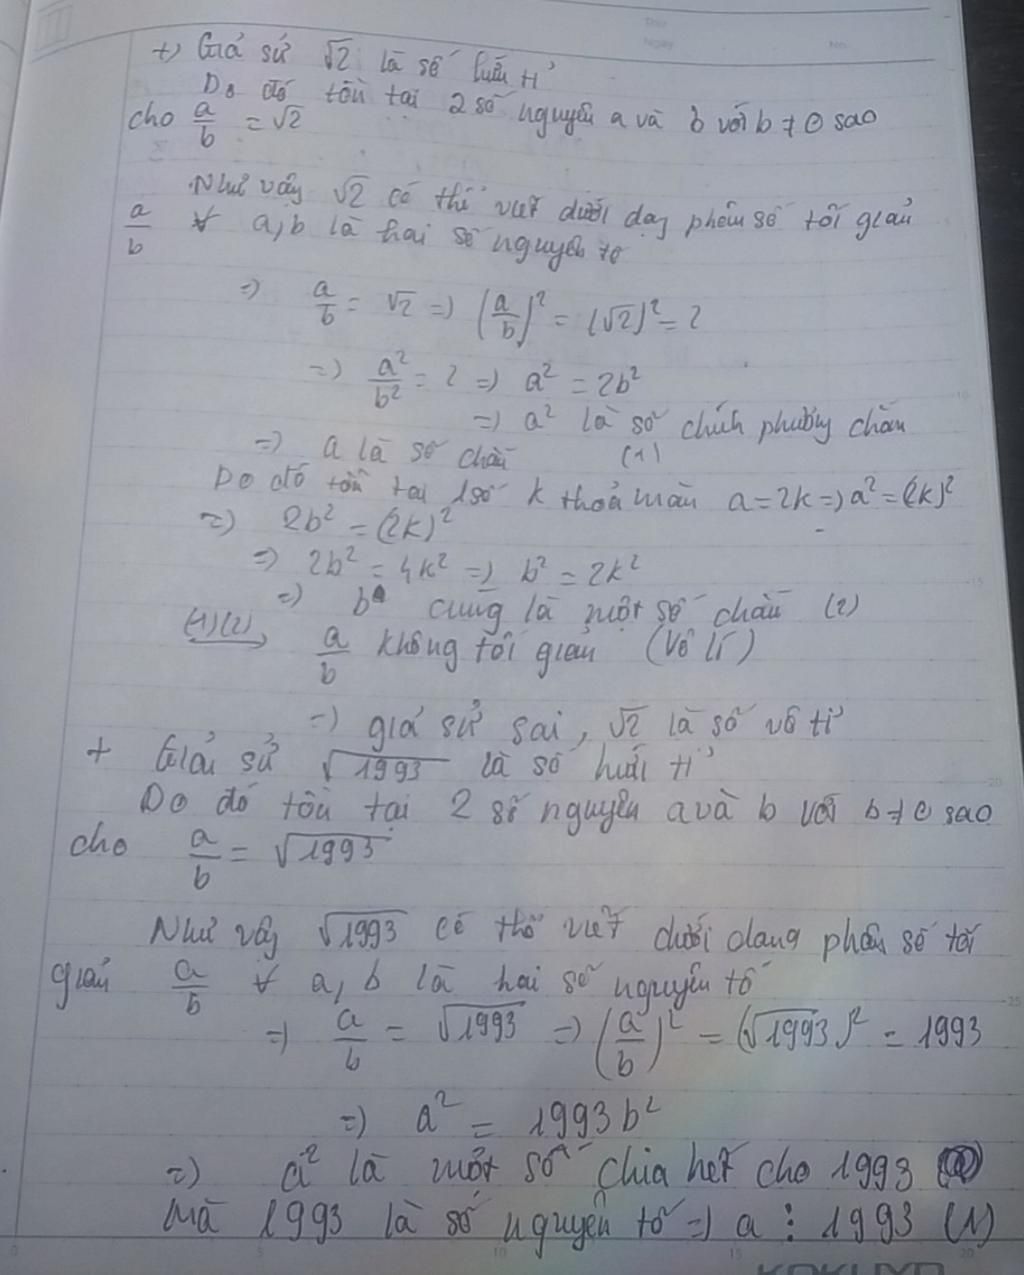 +) Giả sử √2 là số hữu tỉ
Do đó tồn tại 2 số nguyên a và b với b ≠ 0 sao
cho a/b = √2
Như vậy √2 có thể viết dưới dạng phân số tối giản
a/b ∀ a, b là hai số nguyên tố
=> a/b = √2 => (a/b)² = (√2)² = 2
=> a²/b² = 2 => a² = 2b²
=> a² là số chính phương chẵn
=> a là số chẵn (1)
Do đó tồn tại 1 số k thoả mãn a = 2k => a² = (2k)²
=> 2b² = (2k)²
=> 2b² = 4k² => b² = 2k²
=> b cũng là một số chẵn (2)
(1)(2) a/b không tối giản (Vô lí)
=> giả sử sai, √2 là số vô tỉ
+ Giả sử √1993 là số hữu tỉ
Do đó tồn tại 2 số nguyên a và b với b ≠ 0 sao
cho a/b = √1993
Như vậy √1993 có thể viết dưới dạng phân số tối
giản a/b ∀ a, b là hai số nguyên tố
=> a/b = √1993 => (a/b)² = (√1993)² = 1993
=> a² = 1993b²
=> a² là một số chia hết cho 1993
mà 1993 là số nguyên tố => a ⋮ 1993 (1)
KOKUYO